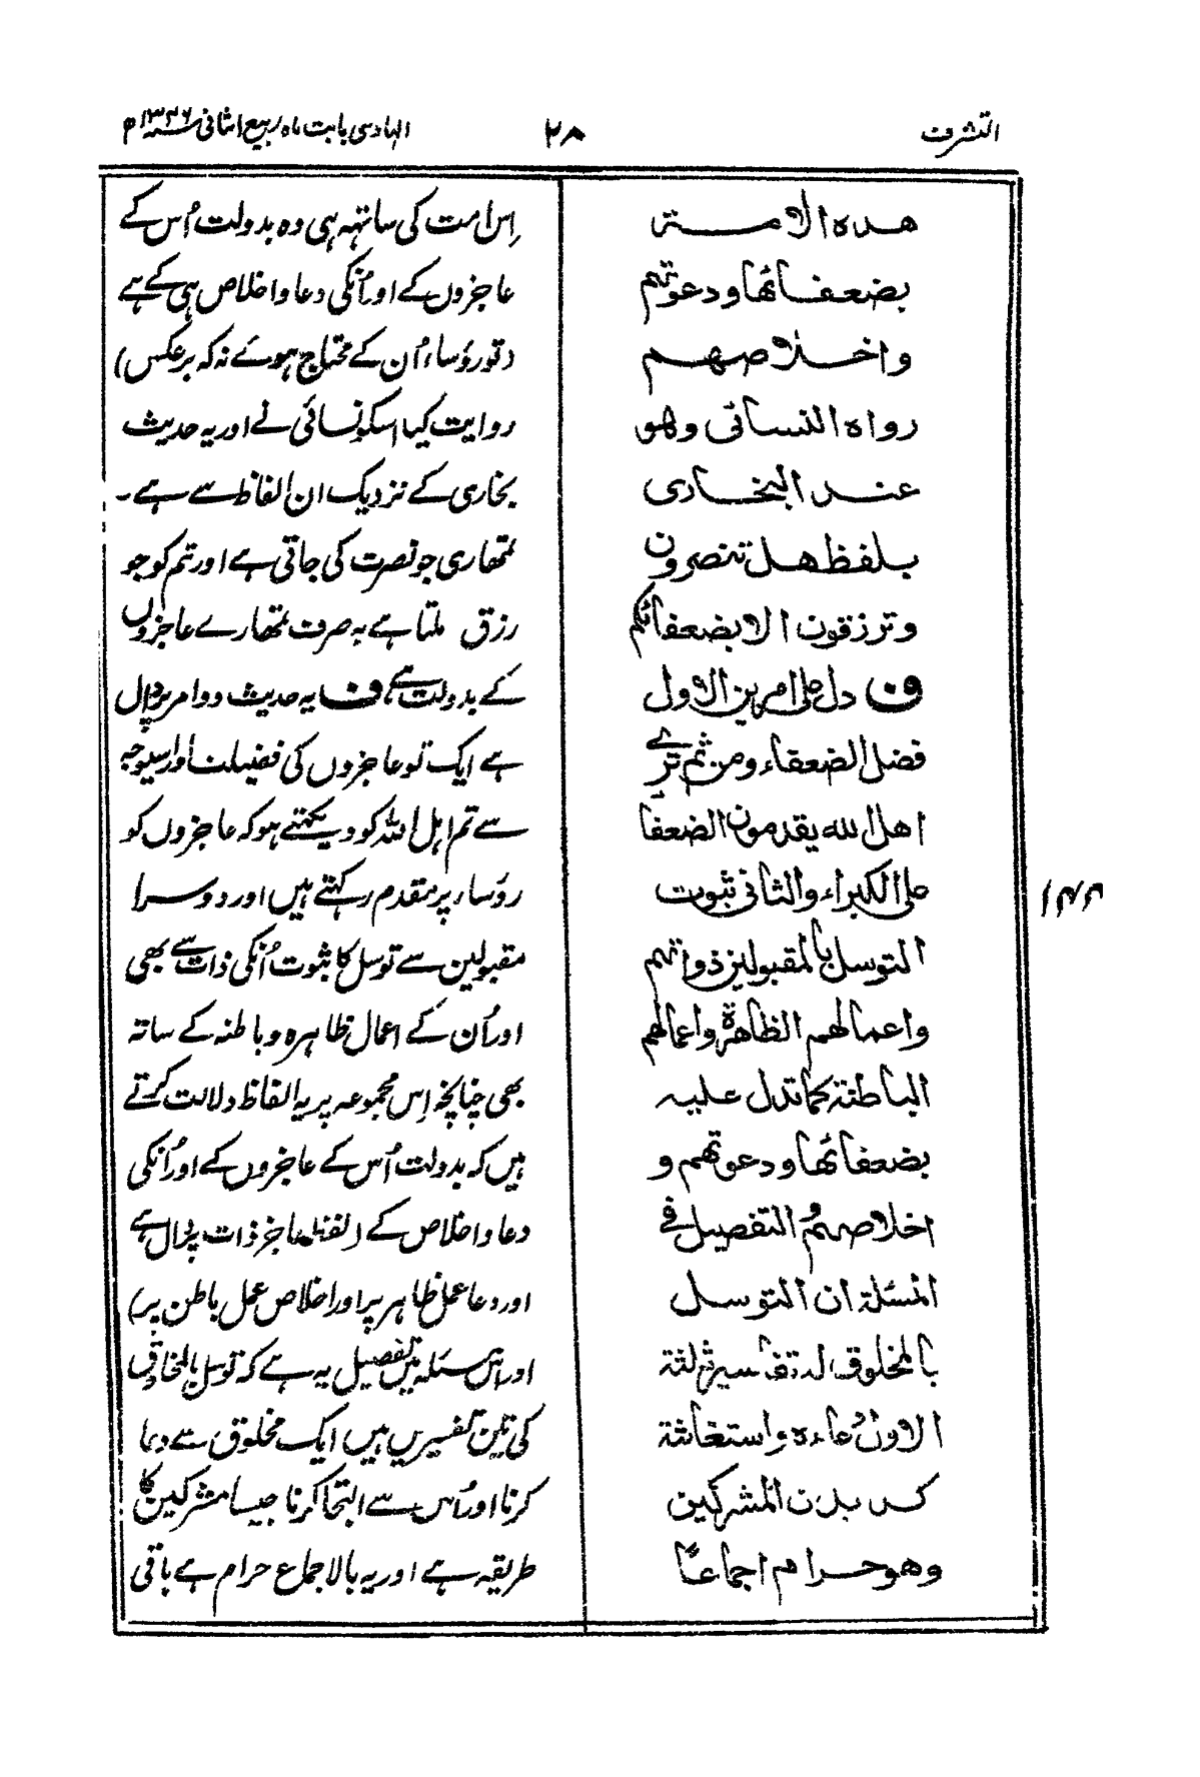 التشرف
٢٨
الہادی بابت ماہ ربیع الثانی سنہ ۱۳۴۶ھ
هذه الامة
بضعفائها ودعوتهم
واخلاصهم
رواه النسائى وهو
عند البخارى
بلفظ هل تنصرون
وترزقون الا بضعفائكم
ف دل على امرين الاول
فضل الضعفاء ومن ثم ترے
اهل الله يقدمون الضعفا
على الكبراء والثانى ثبوت
التوسل بالمقبولين ذواتهم
واعمالهم الظاهرة واعمالهم
الباطنة كما تدل عليه
بضعفائها ودعوتهم و
اخلاصهم و التفصيل فى
المسئلة ان التوسل
بالمخلوق له تفاسير ثلثة
الاول دعاءه واستغاثة
كديدن المشركين
وهو حرام اجماعا
اِس امت کی ساتہہ ہی وہ بدولت اُس کے
عاجزوں کے اور اُنکی دعا و اخلاص ہی کے ہے
(تو رؤسا، اُن کے محتاج ہوئے نہ کہ برعکس)
روایت کیا اسکو نسائی نے اور یہ حدیث
بخاری کے نزدیک ان الفاظ سے ہے۔
تمھاری جو نصرت کی جاتی ہے اور تم کو جو
رزق ملتا ہے یہ صرف تمھارے عاجزوں
کے بدولت ہے ف یہ حدیث دو امر پر دال
ہے ایک تو عاجزوں کی فضیلت اور اسیوجہ
سے تم اہل اللہ کو دیکھتے ہو کہ عاجزوں کو
رؤساء پر مقدم رکھتے ہیں اور دوسرا
مقبولین سے توسل کا ثبوت اُنکی ذات سے بھی
اور اُن کے اعمال ظاہرہ و باطنہ کے ساتہ
بھی چنانچہ اِس مجموعہ پر یہ الفاظ دلالت کرتے
ہیں کہ بدولت اُس کے عاجزوں کے اور اُنکی
دعا و اخلاص کے (لفظ عاجز ذات پر دال ہے
اور دعا عمل ظاہر پر اور اخلاص عمل باطن پر)
اور اس مسئلہ میں تفصیل یہ ہے کہ توسل بالمخلوق
کی تین تفسیریں ہیں ایک مخلوق سے دعا
کرنا اور اُس سے التجا کرنا جیسا مشرکین کا
طریقہ ہے اور یہ بالاجماع حرام ہے باقی